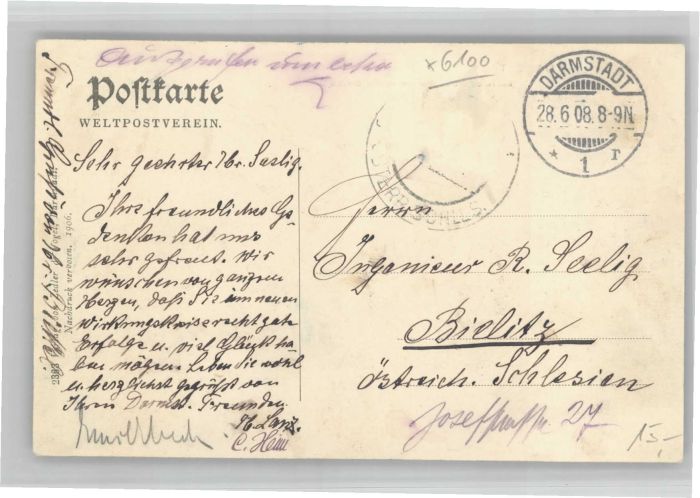 x6100
Postkarte
WELTPOSTVEREIN.
DARMSTADT
28.6.08.8-9N.
* 1 r
ÖSTERR. SCHLES.
Sehr geehrter Hr. Seelig.
Ihre freundliches Ge-
denken hat uns
sehr gefreut. Wir
wünschen von ganzem
Herzen, daß Sie im neuen
Wirkungskreise recht gute
Erfolge u. viel Glück ha-
ben mögen. Leben Sie wohl
u. herzlichst gegrüßt von
Ihren Darmst. Freunden.
H. Lanz.
C.
Herrn
Ingenieur R. Seelig
Bielitz
Östreich. Schlesien
Josefstraße 27
15,-
Nachdruck verboten. 1906.